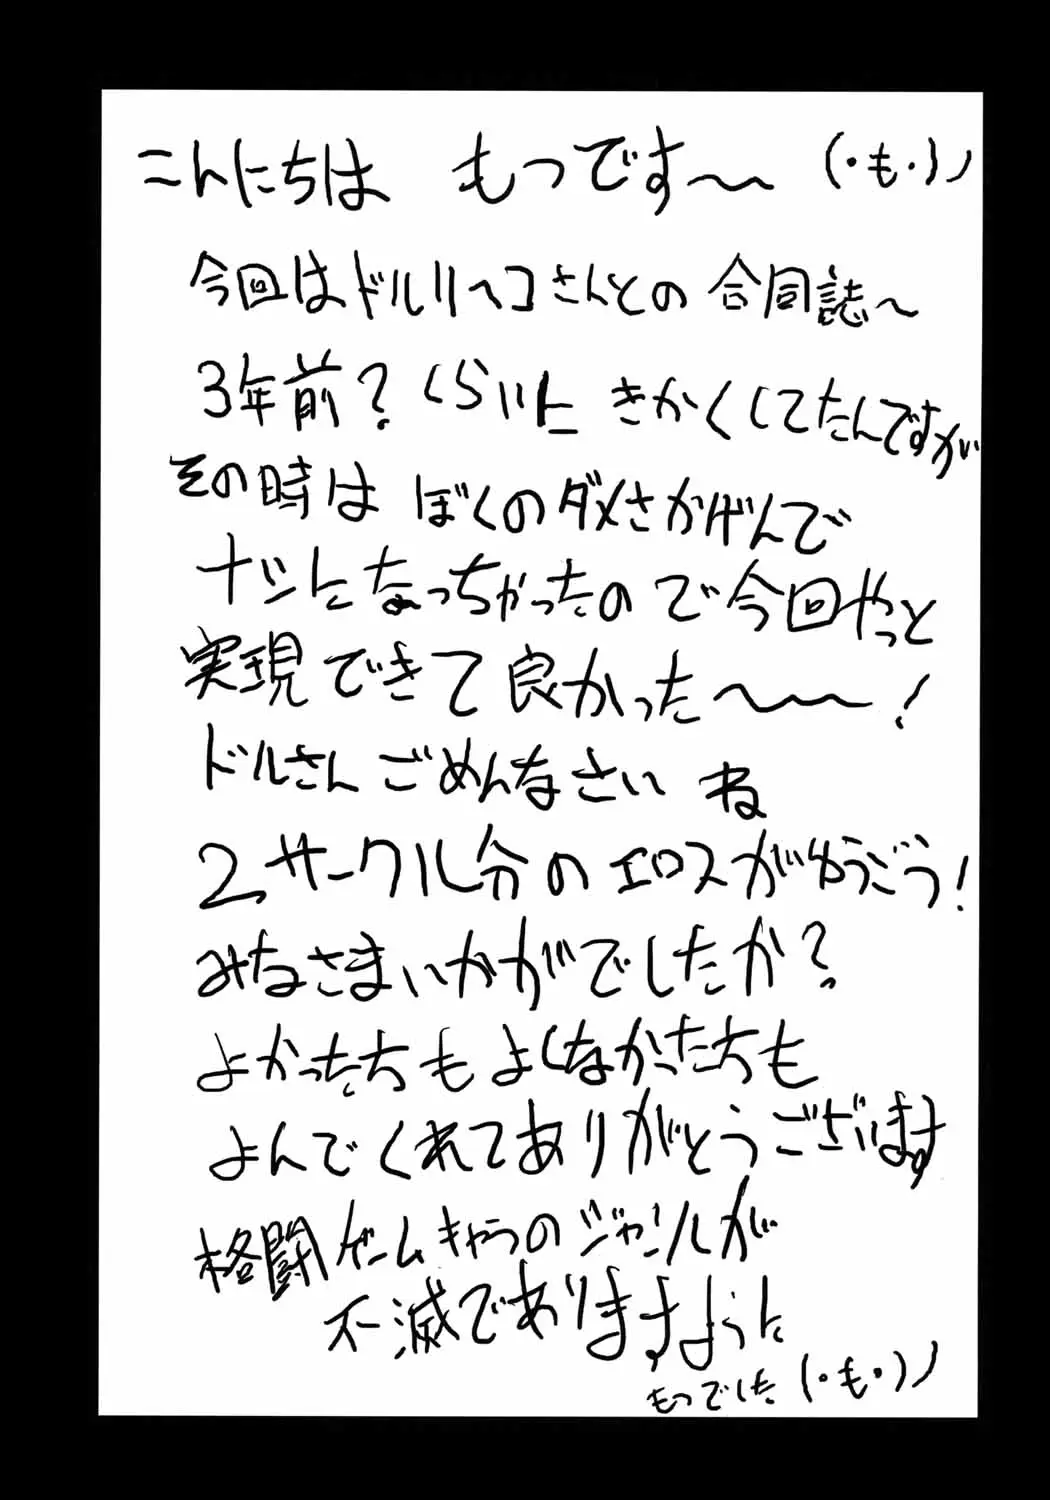 こんにちは もつです〜 (・も・)ノ
今回はドルリヘコさんとの合同誌〜
3年前？くらいに きかくしてたんですが
その時は ぼくのダメさかげんで
ナシになっちゃったので今回やっと
実現できて良かった〜〜！
ドルさん ごめんなさい ね
2サークル分のエロスがゆうごう！
みなさまいかがでしたか？
よかったちもよくなかったちも
よんでくれてありがとうございます
格闘ゲームキャラのジャンルが
不滅でありますように
もつでした (・も・)ノ